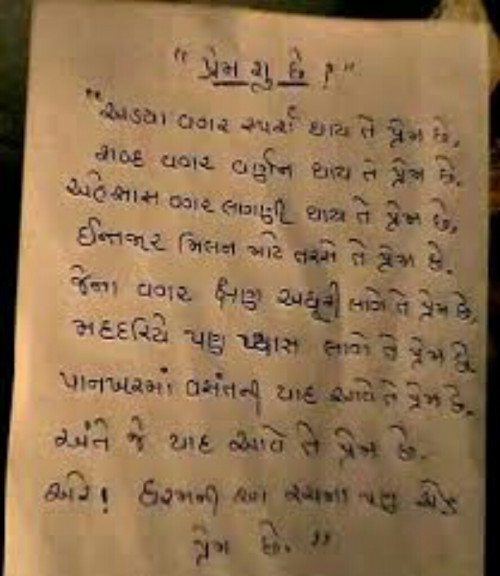 "પ્રેમ શુ છે ?"
"અડયા વગર સ્પર્શ થાય તે પ્રેમ છે,
શબ્દ વગર વર્ણન થાય તે પ્રેમ છે.
અહેસાસ વગર લાગણી થાય તે પ્રેમ છે,
ઈન્તજાર મિલન માટે તરસે તે પ્રેમ છે.
જેના વગર ક્ષણ અધૂરી લાગે તે પ્રેમ છે,
મહદરિયે પણ પ્યાસ લાગે તે પ્રેમ છે.
પાનખરમાં વસંતની યાદ આવે તે પ્રેમ છે.
અંતે જે યાદ આવે તે પ્રેમ છે.
અરે! રચના પણ એક
પ્રેમ છે."